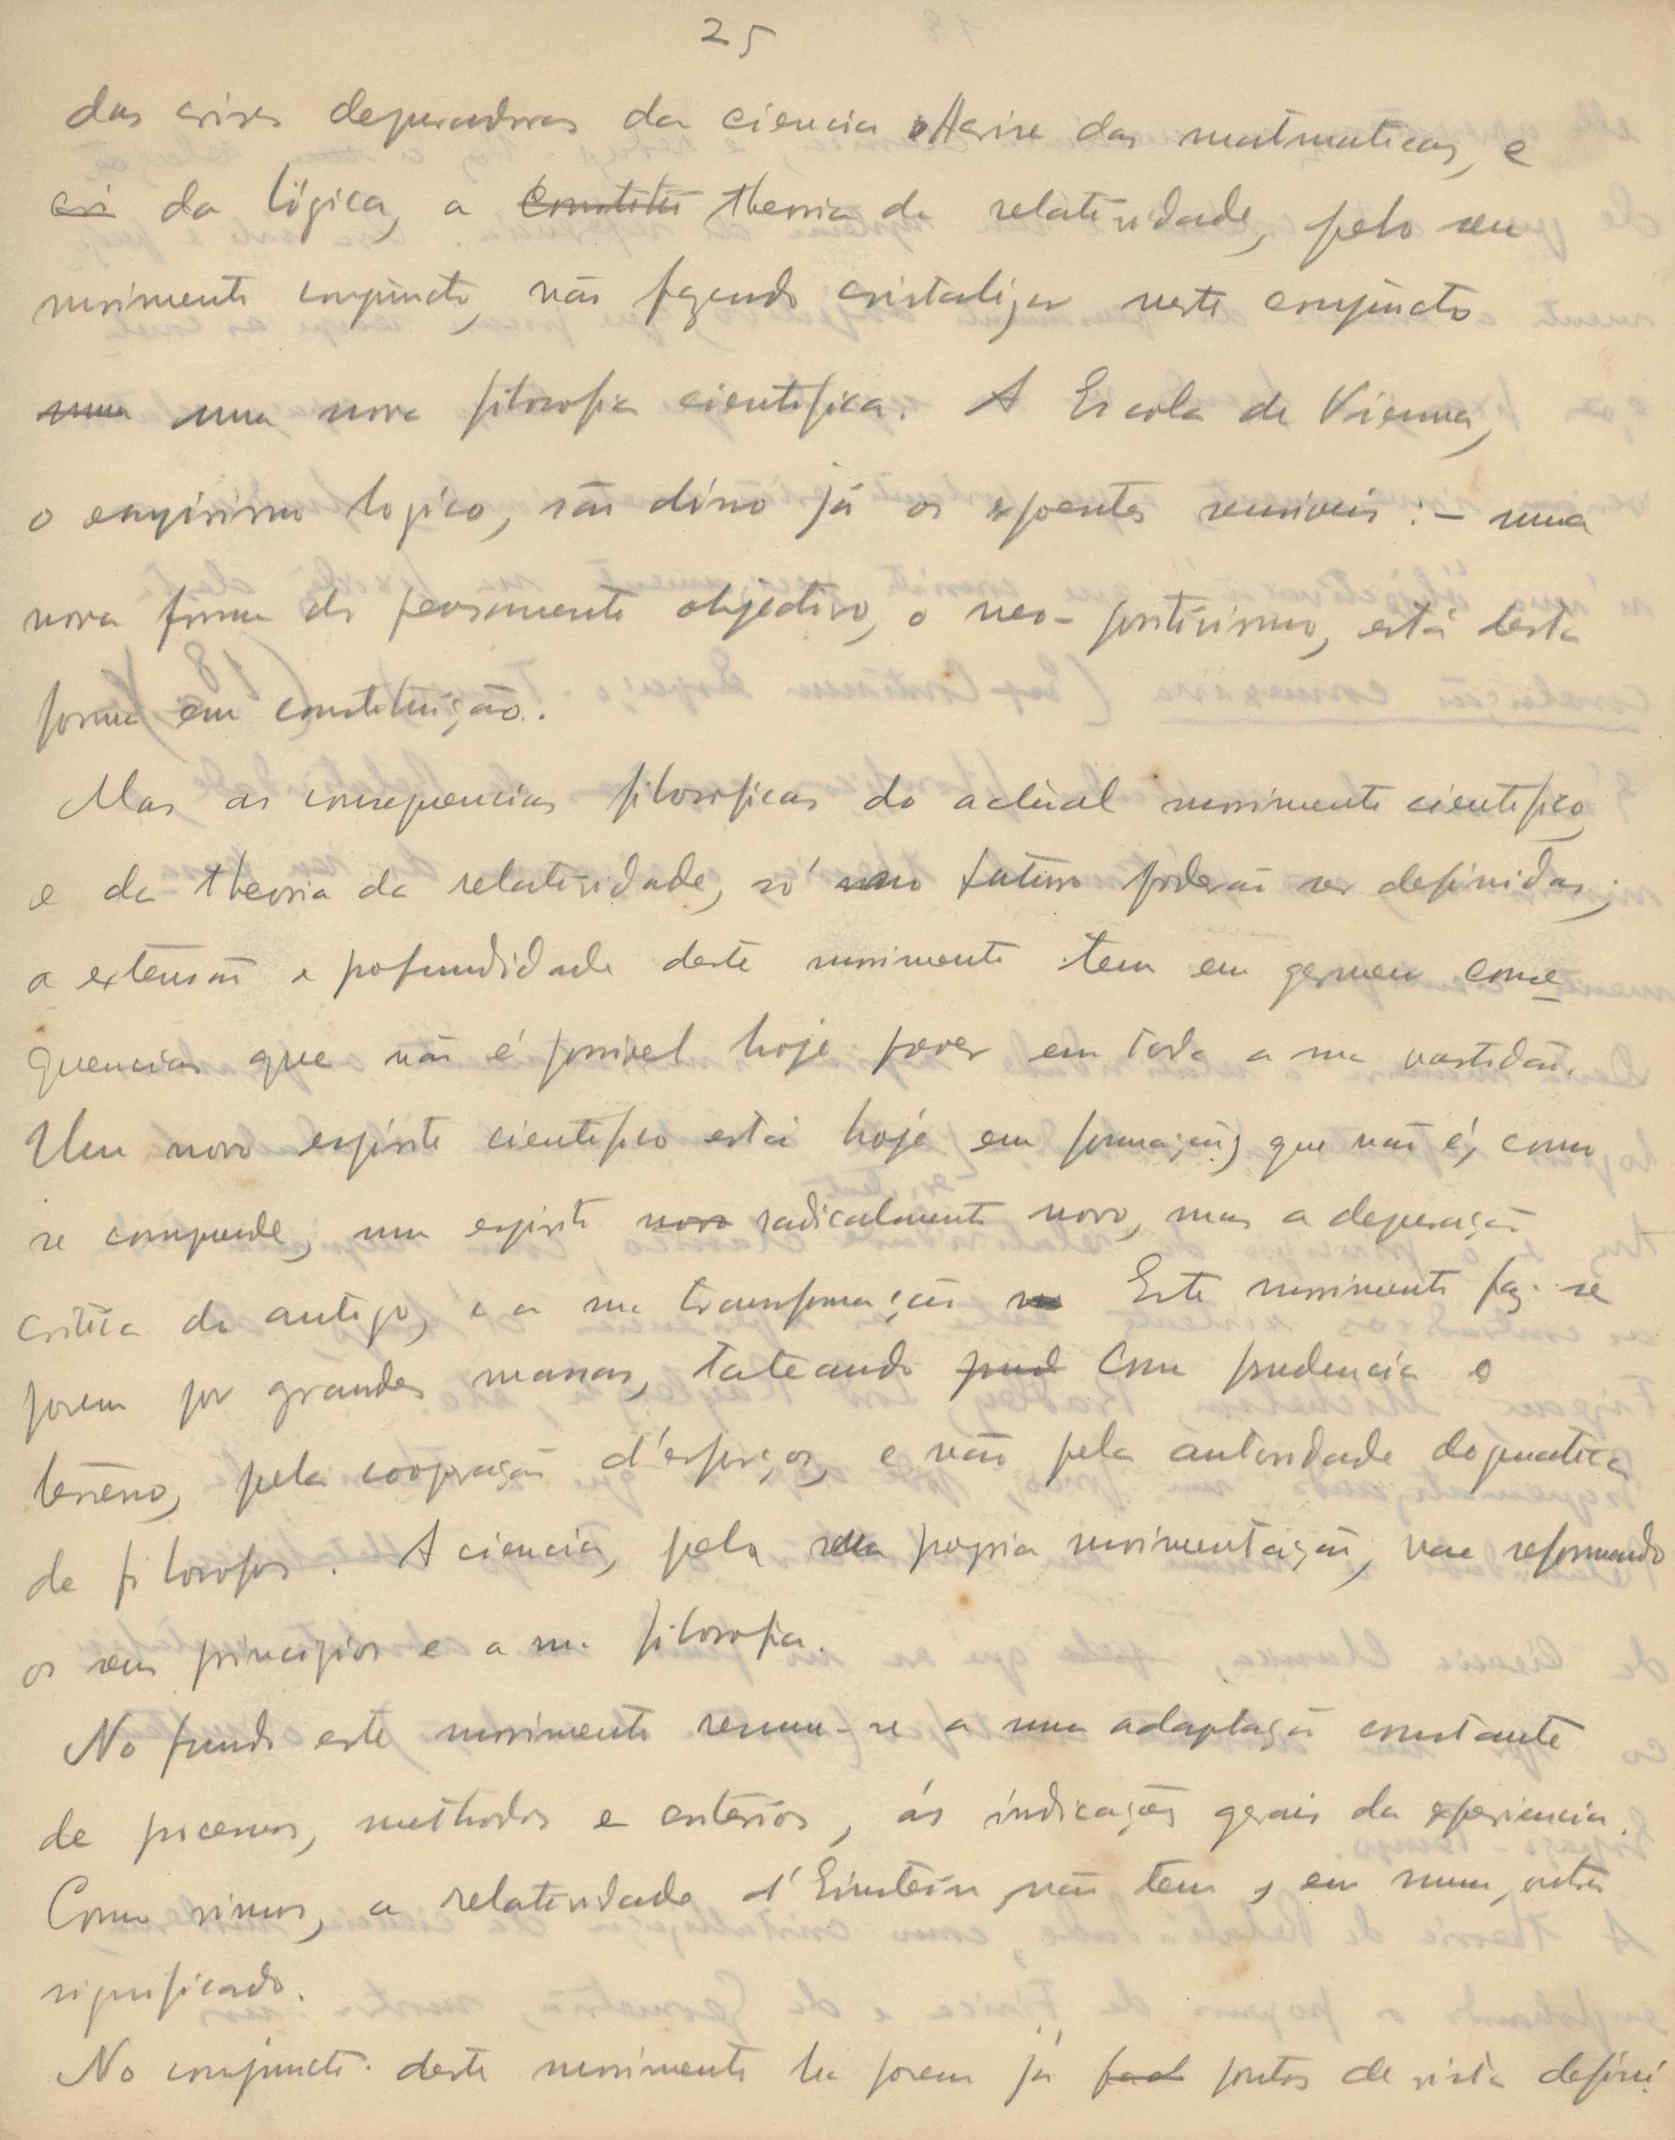 25
das crises depuradoras da ciencia A crise das matematicas, e
cri da lógica, a Constitui theoria da relatividade, pelo seu
movimento conjuncto, vão fazendo cristalizar neste conjuncto
uma uma nova filosofia cientifica. A Escola de Vienna,
o empirismo logico, são disso já os expoentes sensiveis :- uma
nova forma de pensamento objectivo, o neo-positivismo, está desta
forma em constituição.
Mas as consequencias filosoficas do actual movimento cientifico
e da theoria da relatividade, só no futuro poderão ser definidas;
a extensão e profundidade deste movimento tem em germen conse
quencias que não é possivel hoje prever em toda a sua vastidão.
Um novo espirito cientifico está hoje em formação, que não é, como
se comprende, um espirito novo radicalmente novo, mas a depuração
critica do antigo, e a sua transformação Este movimento faz-se
porem por grandes massas, tateando prud Com prudencia o
terreno, pela cooperação d'esforços, e não pela autoridade dogmatica
de filosofos. A ciencia, pela sua propria movimentação, vae reformando
os seus principios e a sua filosofia.
No fundo este movimento resume-se a uma adaptação constante
de processos, methodos e criterios, ás indicações gerais da experiencia.
Como vimos, a relatividade d'Einstein não tem, em suma, outro
significado.
No conjuncto deste movimento ha porem já pontos de vista defini